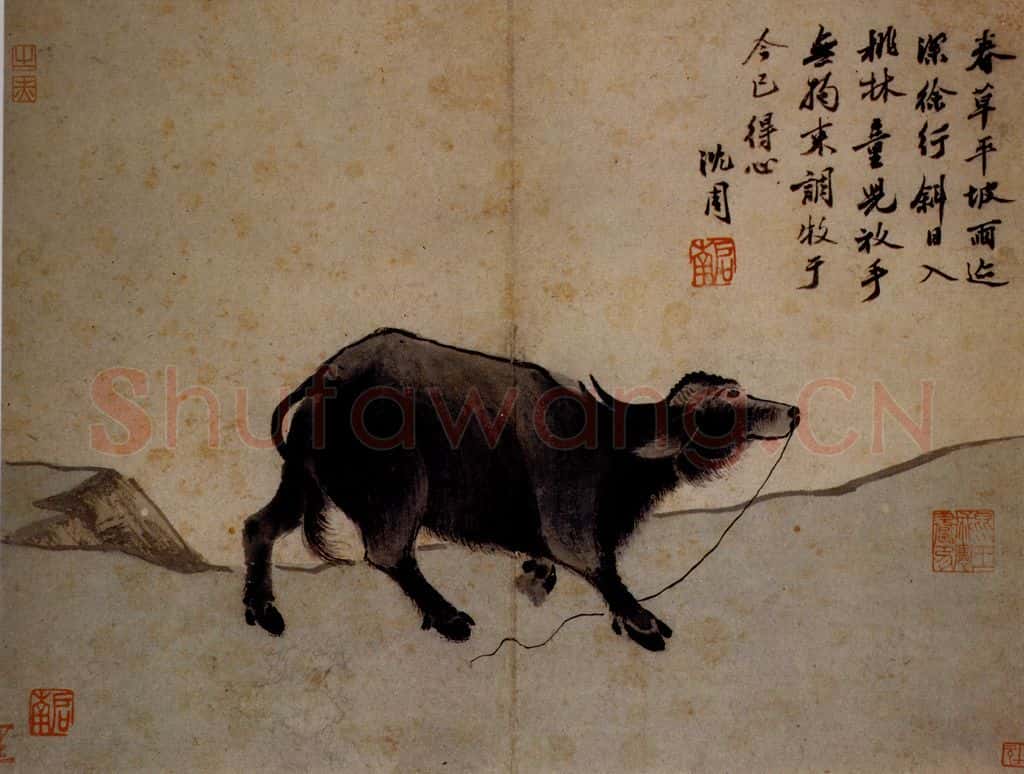 春草平坡雨迹
深徐行斜日入
桃林童兒放手
無拘束調牧于
今已得心
沈周
啓南
Shufawang.CN
啓南